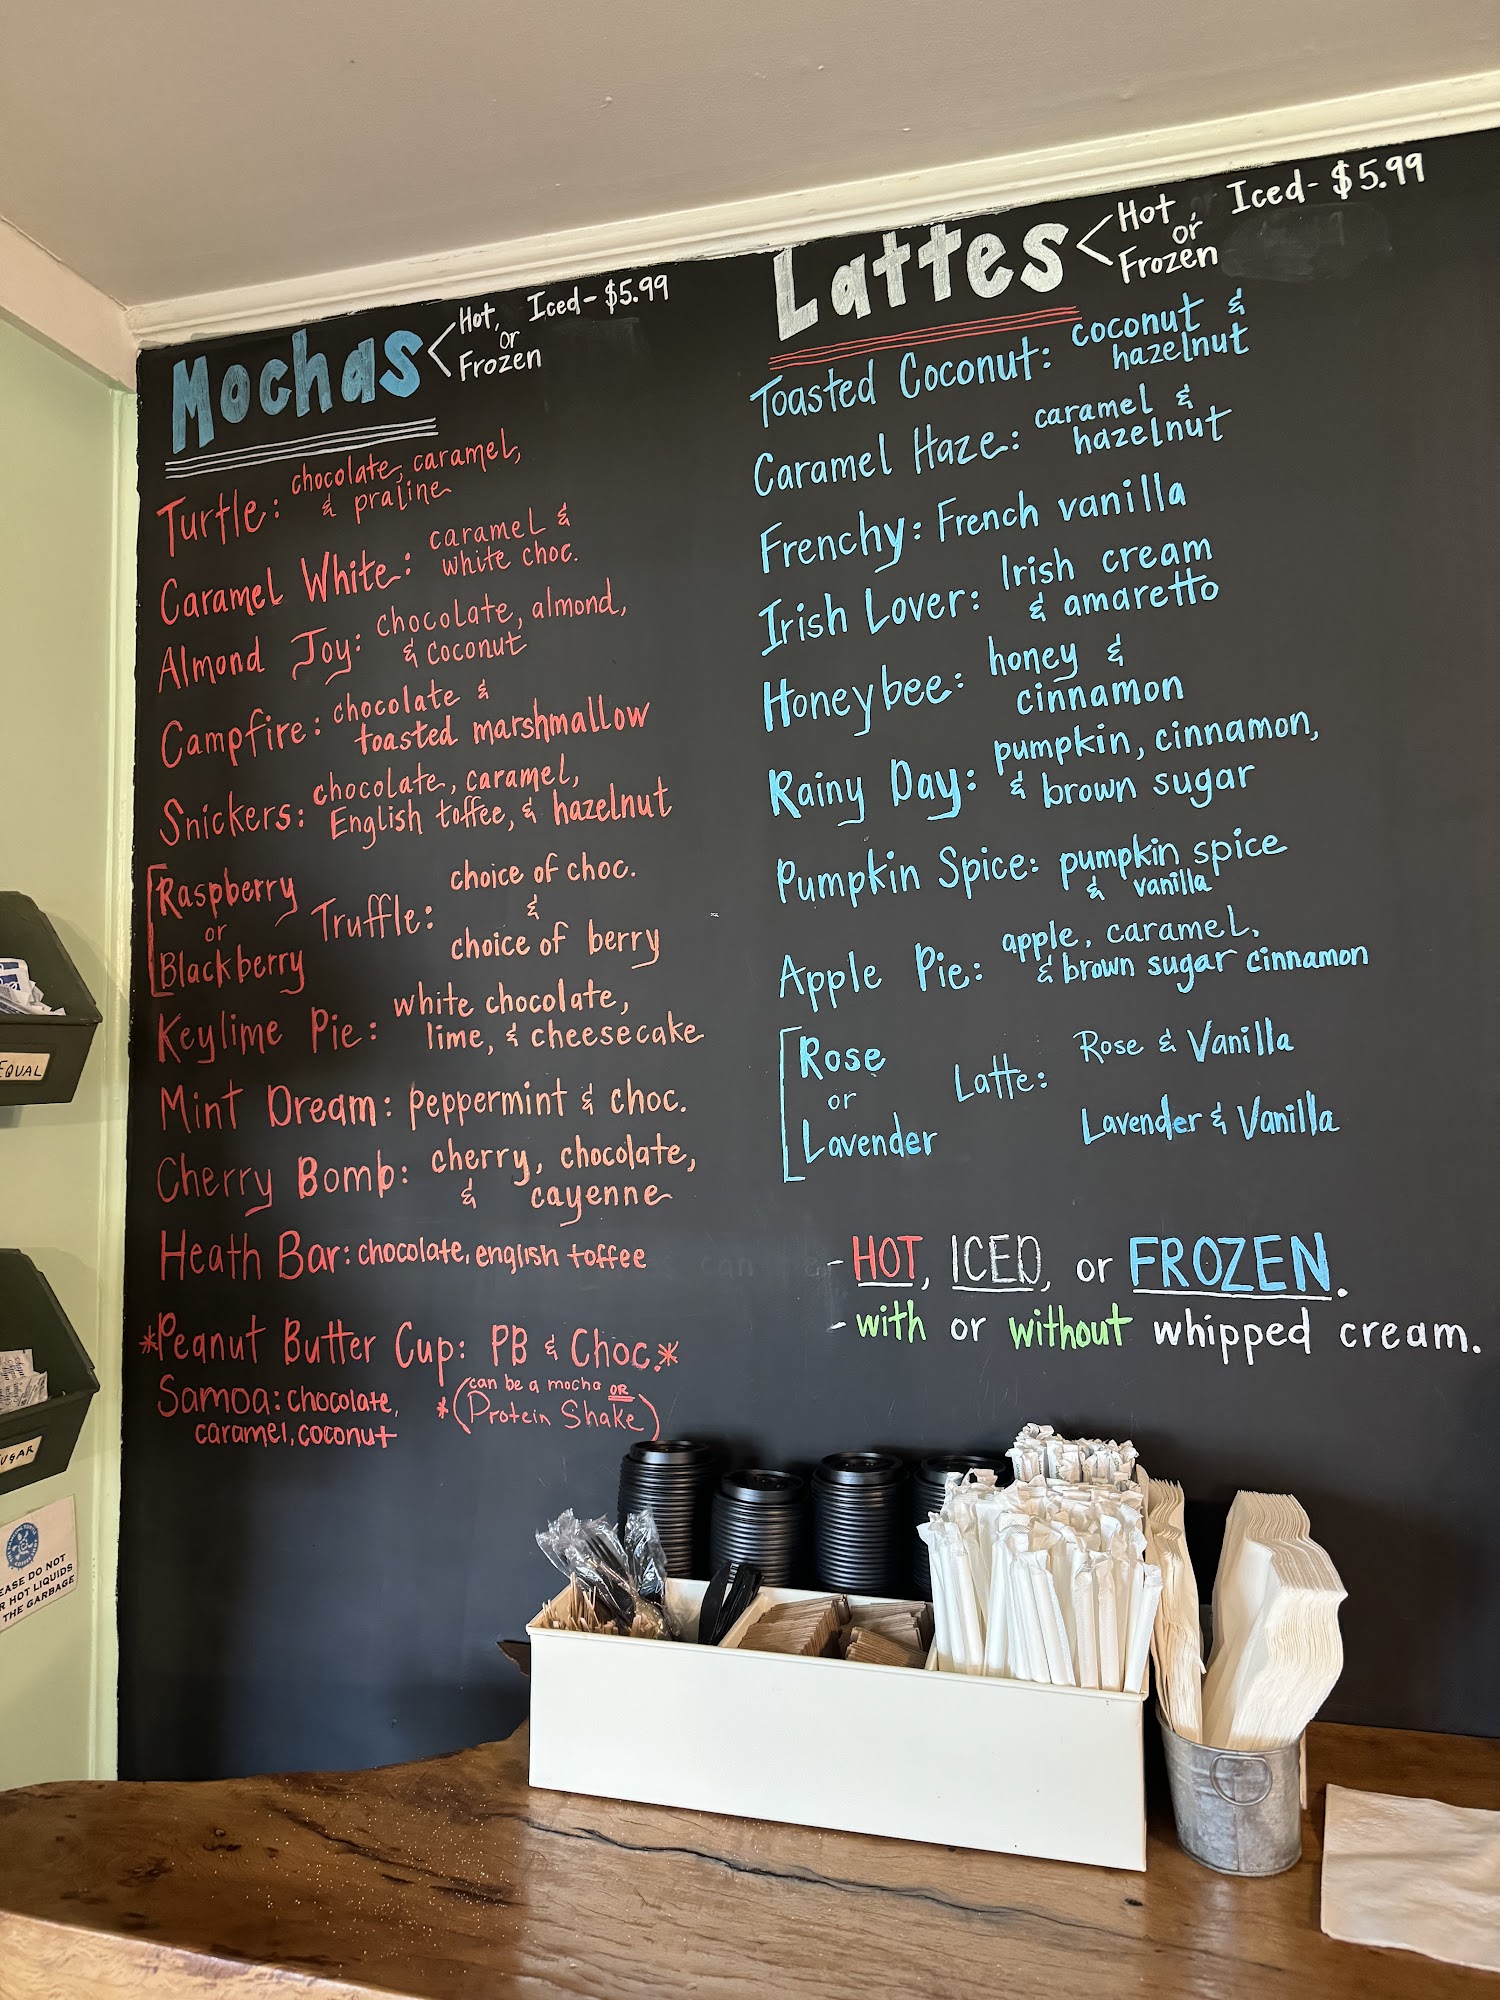 Mochas
Hot, Iced - $5.99
or
Frozen
Turtle: chocolate, caramel,
& praline
Caramel White: caramel &
white choc.
Almond Joy: chocolate, almond,
& coconut
Campfire: chocolate &
toasted marshmallow
Snickers: chocolate, caramel,
English toffee, & hazelnut
Raspberry
or
Blackberry
Truffle:
choice of choc.
&
choice of berry
Keylime Pie: white chocolate,
lime, & cheesecake
Mint Dream: peppermint & choc.
Cherry Bomb: cherry, chocolate,
& cayenne
Heath Bar: chocolate, english toffee
*Peanut Butter Cup: PB & Choc.*
Samoa: chocolate,
caramel, coconut
*(can be a mocha OR
Protein Shake)
Lattes
Hot, Iced - $5.99
or
Frozen
Toasted Coconut: coconut &
hazelnut
Caramel Haze: caramel &
hazelnut
Frenchy: French vanilla
Irish Lover: Irish cream
& amaretto
Honeybee: honey &
cinnamon
Rainy Day: pumpkin, cinnamon,
& brown sugar
Pumpkin Spice: pumpkin spice
& vanilla
Apple Pie: apple, caramel,
& brown sugar cinnamon
Rose
or
Lavender
Latte:
Rose & Vanilla
Lavender & Vanilla
- HOT, ICED, or FROZEN.
- with or without whipped cream.
EQUAL
UGAR
EASE DO NOT
R HOT LIQUIDS
THE GARBAGE